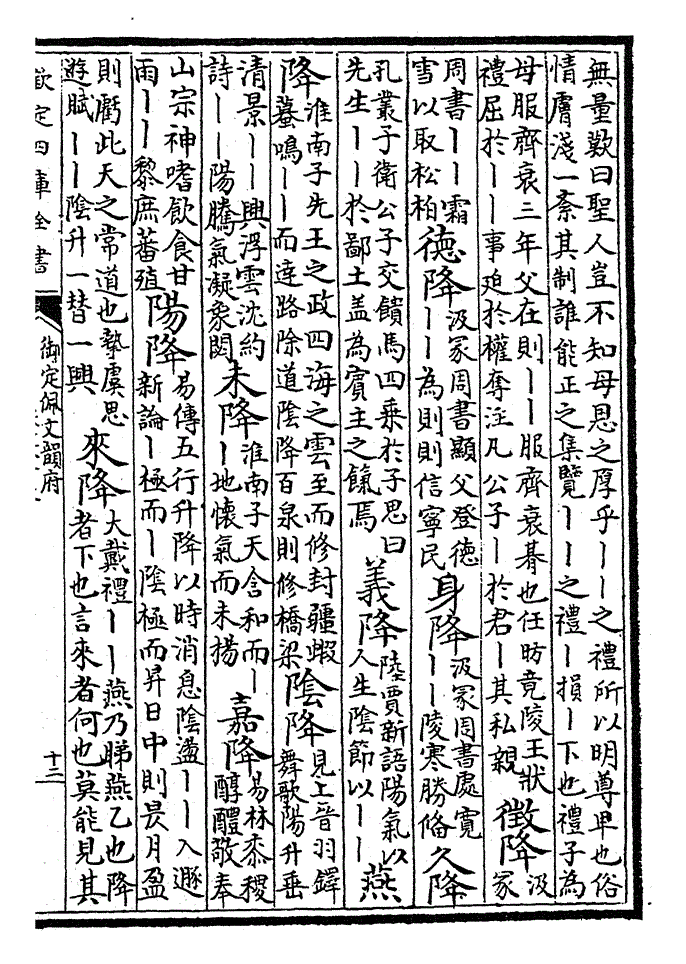 無量歎曰聖人豈不知母恩之厚乎丨丨之禮所以明尊卑也俗
情膚淺一紊其制誰能正之集覽丨丨之禮丨損丨下也禮子為
母服齊衰三年父在則丨丨服齊衰朞也任昉竟陵王狀
禮屈於丨丨事迫於權奪注凡公子丨於君丨其私親
徵降
汲
冢
周書丨丨霜
雪以取松柏
德降
汲冢周書顯父登德
丨丨為則則信寧民
身降
汲冢周書處寬
丨丨陵寒勝備
久降
孔叢子衛公子交饋馬四乗於子思曰
先生丨丨於鄙土盖為賓主之餼焉
義降
陸賈新語陽氣以
人生陰節以丨丨
燕
降
淮南子先王之政四海之雲至而修封疆蝦
蟇鳴丨丨而達路除道陰降百泉則修橋梁
陰降
見上晉羽鐸
舞歌陽升垂
清景丨丨興浮雲沈約
詩丨丨陽騰氣凝象閟
未降
淮南子天含和而丨
丨地懷氣而未揚
嘉降
易林黍稷
醇醴敬奉
山宗神嗜飲食甘
雨丨丨黎庶蕃殖
陽降
易傳五行升降以時消息陰盪丨丨入遯
新論丨極而丨陰極而昇日中則昃月盈
則虧此天之常道也摯虞思
遊賦丨丨陰升一替一興
來降
大戴禮丨丨燕乃睇燕乙也降
者下也言來者何也莫能見其
欽定四庫全書
御定佩文韻府
十三